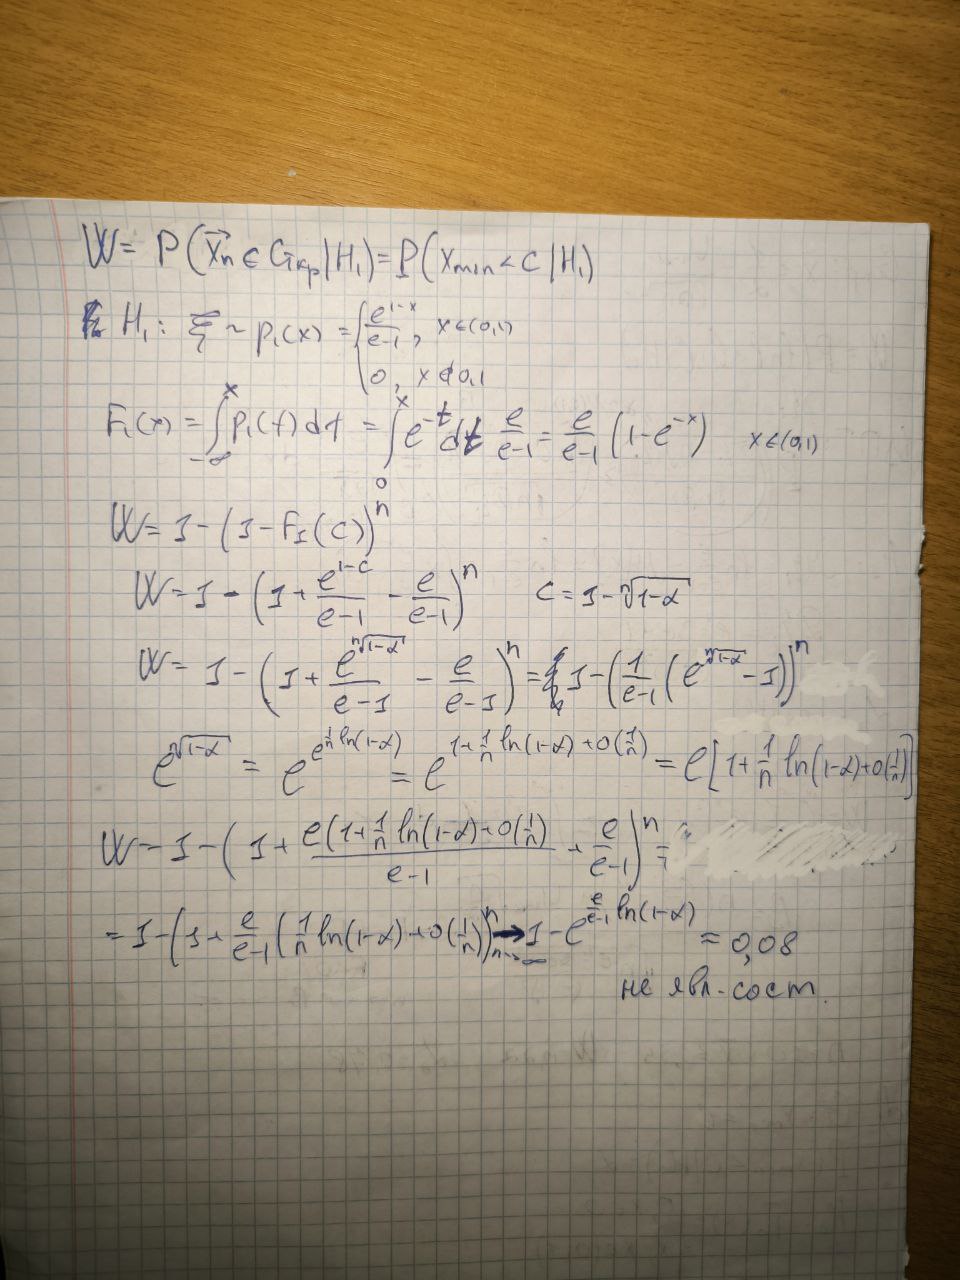 W = P(x⃗n ∈ Gкр | H₁) = P(xmin < c | H₁)
H₁: ξ ~ p₁(x) = { e^(1-x)/(e-1), x ∈ (0,1)
0, x ∉ 0,1
F₁(x) = ∫_{-∞}^{x} p₁(t) dt = ∫_0^x e^(-t) dt e/(e-1) = e/(e-1) (1 - e^(-x)) x ∈ (0,1)
W = 1 - (1 - F₁(c))^n
W = 1 - (1 + e^(1-c)/(e-1) - e/(e-1))^n c = 1 - ⁿ√(1-α)
W = 1 - (1 + e^(ⁿ√(1-α))/(e-1) - e/(e-1))^n = 1 - (1/(e-1) (e^(ⁿ√(1-α)) - 1))^n
e^(ⁿ√(1-α)) = e^(e^(1/n ln(1-α))) = e^(1 + 1/n ln(1-α) + o(1/n)) = e[1 + 1/n ln(1-α) + o(1/n)]
W - 1 - (1 + e(1 + 1/n ln(1-α) + o(1/n))/(e-1) + e/(e-1))^n =
= 1 - (1 + e/(e-1) (1/n ln(1-α) + o(1/n))^n →_{n→∞} 1 - e^(e/(e-1) ln(1-α)) = 0,08
не явл. сост.